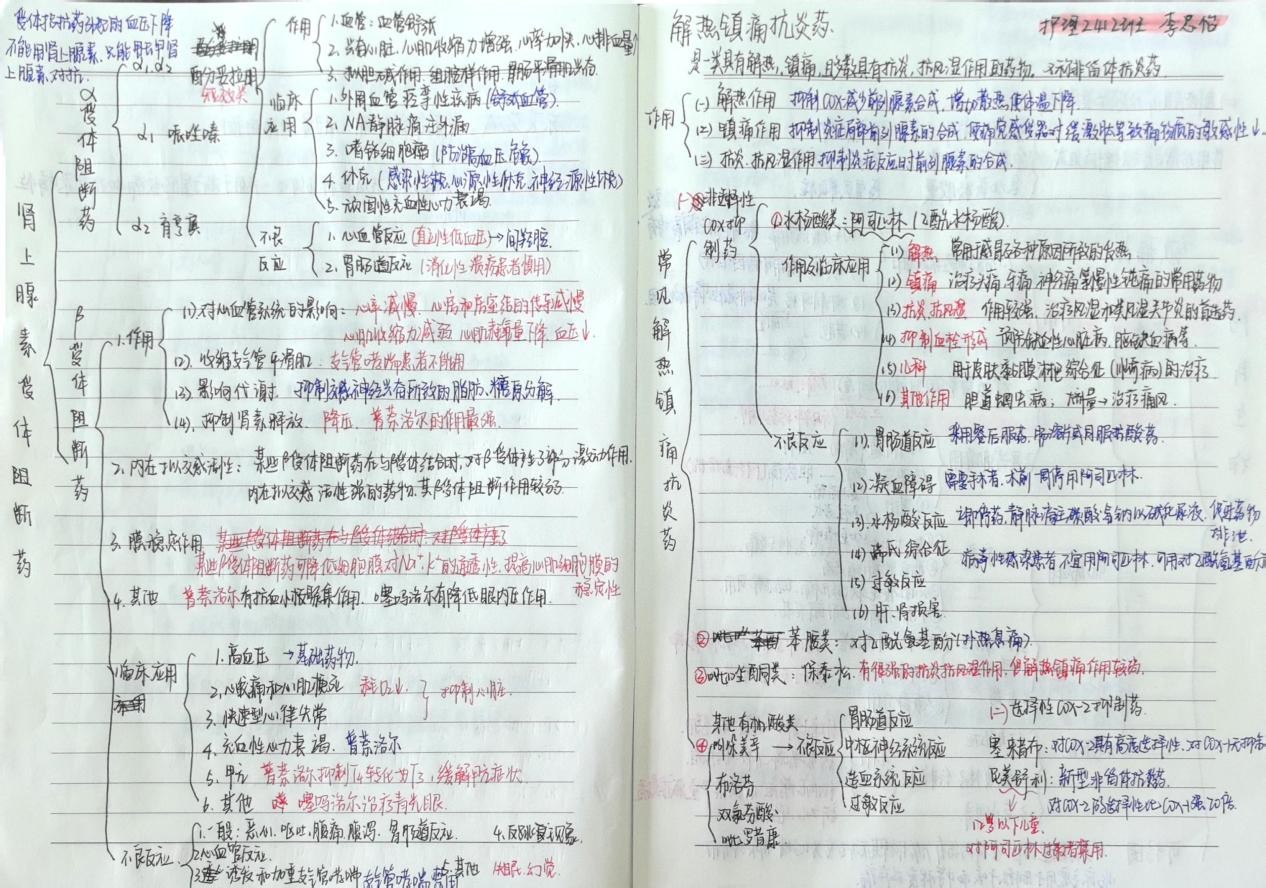 受体拮抗药引起的血压下降
不能用肾上腺素,只能用去甲肾
上腺素对抗.
肾上腺素受体阻断药
α受体阻断药
α1、α2
酚妥拉明
短效类
作用
1.血管:血管舒张
2.兴奋心脏,心肌收缩力增强,心率加快,心排血量↑
3.拟胆碱作用、组胺样作用,胃肠平滑肌兴奋.
临床应用
1.外周血管痉挛性疾病(舒张血管).
2.NA静脉滴注外漏
3.嗜铬细胞瘤(防治高血压危象)
4.休克(感染性休克,心源性休克,神经源性休克)
5.顽固性充血性心力衰竭
不良反应
1.心血管反应(直立性低血压)→
2.胃肠道反应(消化性溃疡患者慎用)
α1 哌唑嗪
α2 育亨宾
β受体阻断药
1.作用
(1)对心血管系统的影响:心率减慢、心房和房室结的传导减慢
心肌收缩力减弱,心脏排血量下降,血压↓.
(2).收缩支气管平滑肌:支气管哮喘患者不能用
(3)影响代谢:抑制交感神经兴奋所致的脂肪、糖原分解.
(4).抑制肾素释放 降压.普萘洛尔的作用最强.
2.内在拟交感活性:某些β受体阻断药在与β受体结合时,对β受体产生了部分激动作用.
内在拟交感活性强的药物,其β受体阻断作用较弱.
3.膜稳定作用 某些β受体阻断药在与β受体结合时,对β受体产生了
某些β受体阻断药可降低细胞膜对Na⁺、K⁺的通透性,提高心肌细胞膜的
稳定性
4.其他 普萘洛尔有抗血小板聚集作用.噻吗洛尔有降低眼内压作用.
临床应用
1.高血压 →基础药物.
2.心绞痛和心肌梗死 耗O₂↓. 抑制心脏.
3.快速型心律失常
4.充血性心力衰竭.普萘洛尔
5.甲亢 普萘洛尔抑制T4转化为T3,缓解甲亢症状.
6.其他 噻吗洛尔治疗青光眼.
不良反应
1.一般:恶心、呕吐,腹痛,腹泻.胃肠道反应. 4.反跳现象
2.心血管反应.
3.诱发和加重支气管哮喘 支气管哮喘禁用 5.其他 失眠.幻觉.
解热镇痛抗炎药. 护理2412班 李思
是一类具有解热,镇痛,且多数具有抗炎,抗风湿作用的药物.又称非甾体抗炎药.
作用
(一)解热作用 抑制COX减少前列腺素合成,增加散热使体温下降
(2)镇痛作用 抑制炎症局部前列腺素的合成,使痛觉感受器对缓激肽等致痛物质的敏感性↓.
(3)抗炎、抗风湿作用 抑制炎症反应时前列腺素的合成.
常见解热镇痛抗炎药
(一)非选择性COX抑制药
①水杨酸类:阿司匹林(乙酰水杨酸)
作用及临床应用
(1)解热 常用感冒及各种原因所致的发热
(2)镇痛 治疗头痛、牙痛、神经痛等慢性钝痛的常用药物
(3)抗炎抗风湿 作用较强,治疗风湿和类风湿关节炎的首选药.
(4)抑制血栓形成 预防缺血性心脏病、脑缺血病等
(5)儿科 用于皮肤黏膜淋巴综合征(川崎病)的治疗
(6)其他作用 胆道蛔虫病;剂量→治疗痛风.
不良反应
(1).胃肠道反应 采用餐后服药,或同服抗酸药.
(2)凝血障碍 需要手术者,术前一周停用阿司匹林.
(3).水杨酸反应 立即停药,静脉滴注碳酸氢钠以碱化尿液,促进药物
排泄.
(4)瑞氏综合征 病毒性感染患者不宜用阿司匹林.可用对乙酰氨基酚
(5)过敏反应
(6)肝、肾损害
② 苯胺类:对乙酰氨基酚(扑热息痛).
③吡唑酮类:保泰松.有很强的抗炎抗风湿作用,但解热镇痛作用较弱.
其他有机酸类
④吲哚美辛 →不良反应
胃肠道反应
中枢神经系统反应
造血系统反应
过敏反应
布洛芬
双氯芬酸
吡罗昔康
(二)选择性COX-2抑制药.
塞来昔布:对COX-2具有高度选择性,对COX-1无抑制
尼美舒利:新型非甾体抗炎药.
对COX-2的选择性比COX-1强20倍.
12岁以下儿童.
对阿司匹林过敏者禁用.